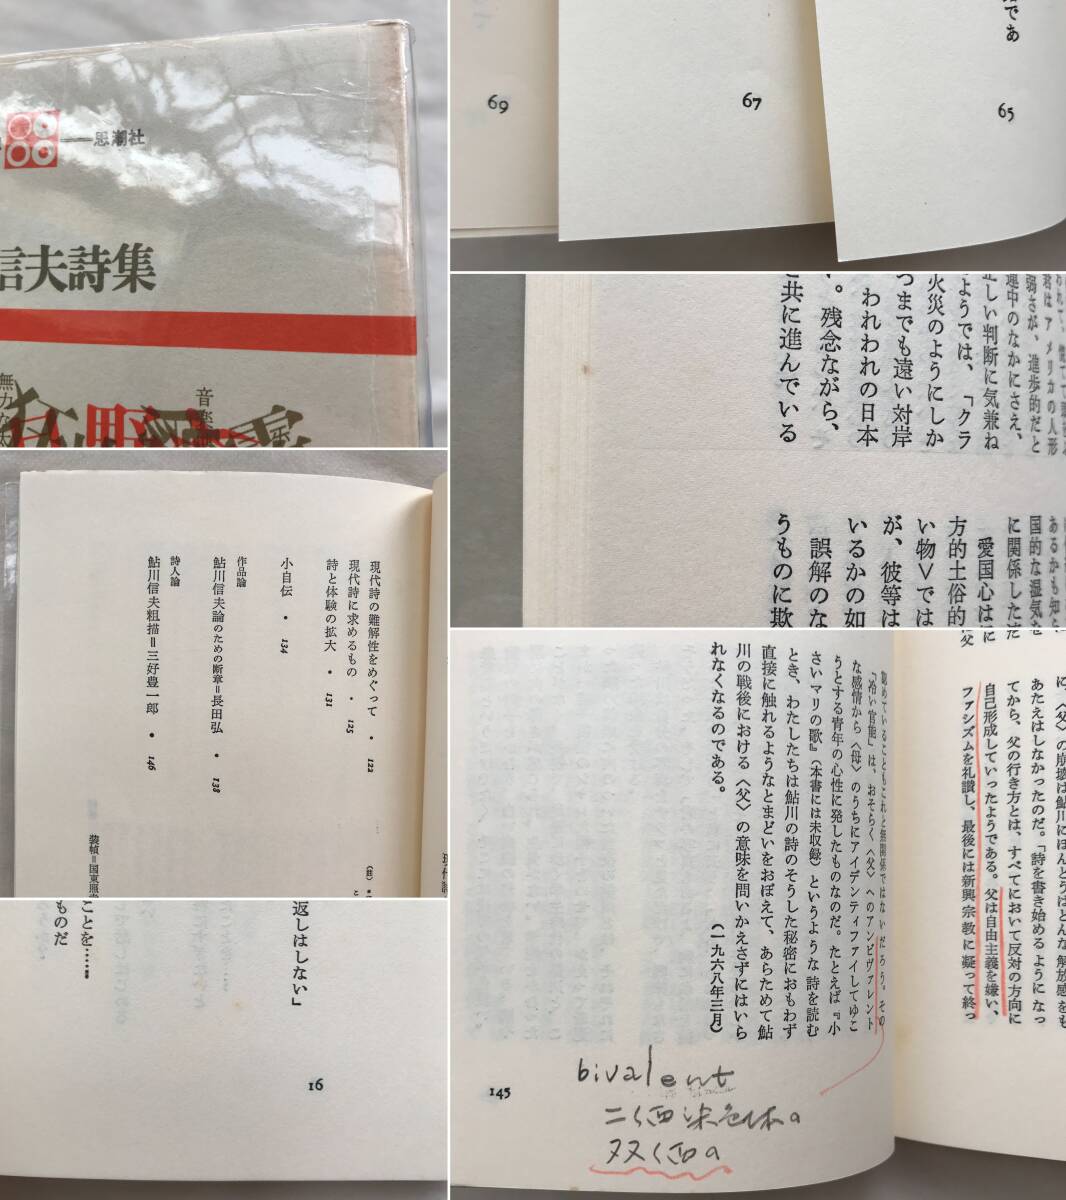 思潮社
信夫詩集
音楽
無力な
であ
69
67
65
君はアメリカの人形
弱さが、進歩的だと
連中のなかにさえ、
正しい判断に気兼ね
ようでは、「クラ
火災のようにしか
つまでも遠い対岸
われわれの日本
。残念ながら、
と共に進んでいる
あるかも知
国的な湿気な
に関係した
愛国心はに
方的土俗的
い物＞では
が、彼等は
いるかの如
誤解のな
うものに欺
現代詩の難解性をめぐって • 122
現代詩に求めるもの • 125
詩と体験の拡大 • 131
小自伝 • 134
作品論
鮎川信夫論のための断章＝長田弘 • 138
詩人論
鮎川信夫粗描＝三好豊一郎 • 146
装幀＝国東照幸
返しはしない」
ことを……
ものだ
16
に、〈父〉の崩壊は鮎川にほんとうはどんな解放感をも
あたえはしなかったのだ。「詩を書き始めるようになっ
てから、父の行き方とは、すべてにおいて反対の方向に
自己形成していったようである。父は自由主義を嫌い、
ファシズムを礼讃し、最後には新興宗教に凝って終っ
認めていることもこれと無関係ではないだろう。その
「冷い官能」は、おそらく〈父〉へのアンビヴァレント
な感情から〈母〉のうちにアイデンティファイしてゆこ
うとする青年の心性に発したものなのだ。たとえば『小
さいマリの歌』（本書には未収録）というような詩を読む
とき、わたしたちは鮎川の詩のそうした秘密におもわず
直接に触れるようなとまどいをおぼえて、あらためて鮎
川の戦後における〈父〉の意味を問いかえさずにはいら
れなくなるのである。
（一九六八年三月）
145
bivalent
二価染色体の
双価の